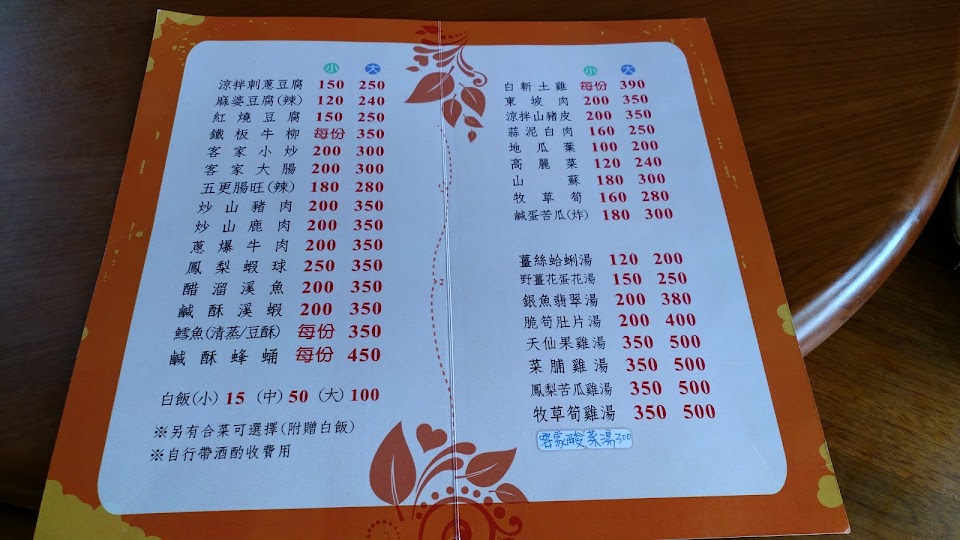 小 大
涼拌刺蔥豆腐 150 250
麻婆豆腐(辣) 120 240
紅燒豆腐 150 250
鐵板牛柳 每份 350
客家小炒 200 300
客家大腸 200 300
五更腸旺(辣) 180 280
炒山豬肉 200 350
炒山鹿肉 200 350
蔥爆牛肉 200 350
鳳梨蝦球 250 350
醋溜溪魚 200 350
鹹酥溪蝦 200 350
鱈魚(清蒸/豆酥) 每份 350
鹹酥蜂蛹 每份 450
白飯(小) 15 (中) 50 (大) 100
※另有合菜可選擇(附贈白飯)
※自行帶酒酌收費用
小 大
白斬土雞 每份 390
東坡肉 200 350
涼拌山豬皮 200 350
蒜泥白肉 160 250
地瓜葉 100 200
高麗菜 120 240
山蘇 180 300
牧草筍 160 280
鹹蛋苦瓜(炸) 180 300
薑絲蛤蜊湯 120 200
野薑花蛋花湯 150 250
銀魚翡翠湯 200 380
脆筍肚片湯 200 400
天仙果雞湯 350 500
菜脯雞湯 350 500
鳳梨苦瓜雞湯 350 500
牧草筍雞湯 350 500
客家酸菜湯300